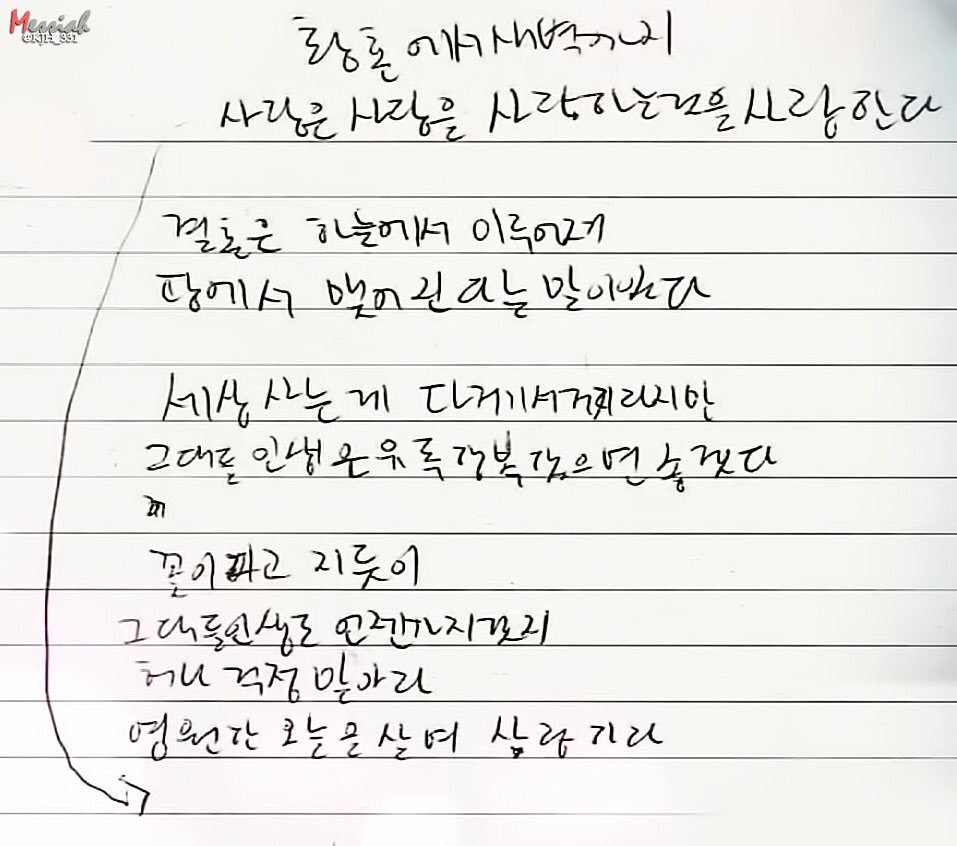 Messiah
@KJH_331
황혼에서 새벽까지
사랑은 사랑을 사랑하는 것을 사랑한다
결혼은 하늘에서 이루어져
땅에서 맺어진다는 말이 있다
세상 사는 게 다 거기서 거기라지만
그대들 인생은 유독 행복했으면 좋겠다
꽃이 피고 지듯이
그대들 인생도 언젠가 지겠지
허나 걱정 말아라
영원한 오늘을 살며 사랑하라